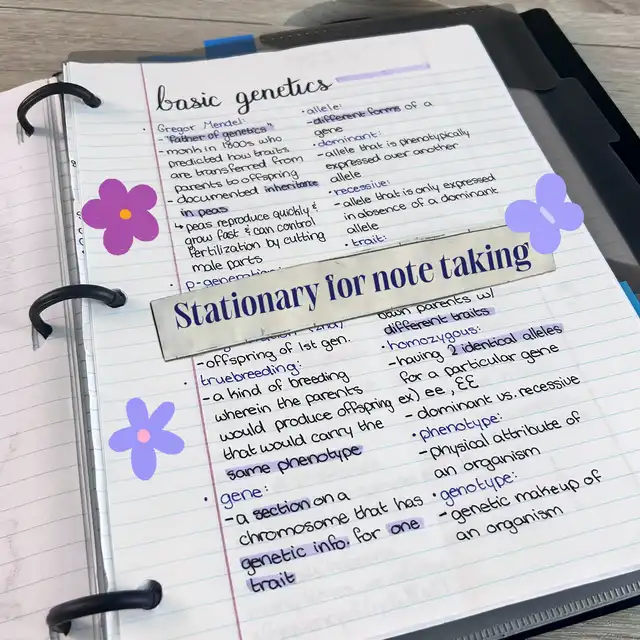 basic genetics
• Gregor Mendel:
- "father of genetics"
- monk in 1800s who
predicted how traits
are transferred from
parents to offspring
- documented inheritance
in peas
↳ peas reproduce quickly &
grow fast & can control
fertilization by cutting
male parts
• p-generation
- offspring of 1st gen.
• truebreeding:
- a kind of breeding
wherein the parents
would produce offspring
that would carry the
same phenotype
• gene:
- a section on a
chromosome that has
genetic info. for one
trait
• allele:
- different forms of a
gene
• dominant:
- allele that is phenotypically
expressed over another
allele
• recessive:
- allele that is only expressed
in absence of a dominant
allele
• trait:
Stationary for note taking
down parents w/
different traits
• homozygous:
- having 2 identical alleles
for a particular gene
ex) ee, EE
- dominant vs. recessive
• phenotype:
- physical attribute of
an organism
• genotype:
- genetic makeup of
an organism